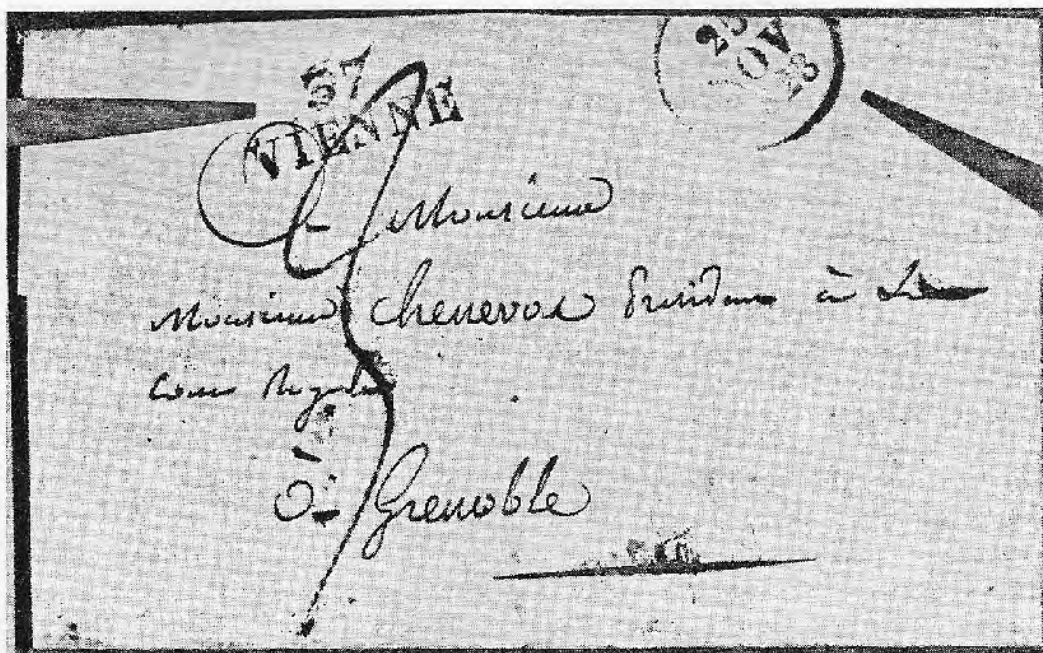 37
VIENNE
25
NOV
28
A Monsieur
Monsieur Chenevas Président à La
Cour Royale
à Grenoble